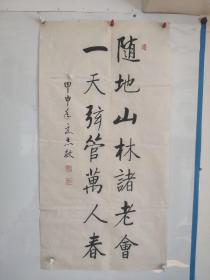 随地山林諸老會
一天弦管萬人春
甲申年